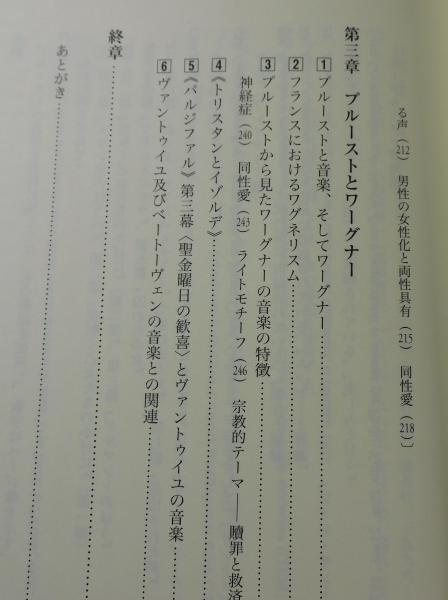 る声（212）　男性の女性化と両性具有（215）　同性愛（218）〕
第三章　プルーストとワーグナー
1 プルーストと音楽、そしてワーグナー………………
2 フランスにおけるワグネリスム………………
3 プルーストから見たワーグナーの音楽の特徴………………
神経症（240）　同性愛（243）　ライトモチーフ（246）　宗教的テーマ――贖罪と救済
4 《トリスタンとイゾルデ》………………
5 《パルジファル》第三幕〈聖金曜日の歓喜〉とヴァントゥイユの音楽………………
6 ヴァントゥイユ及びベートーヴェンの音楽との関連………………
終章………………
あとがき………………